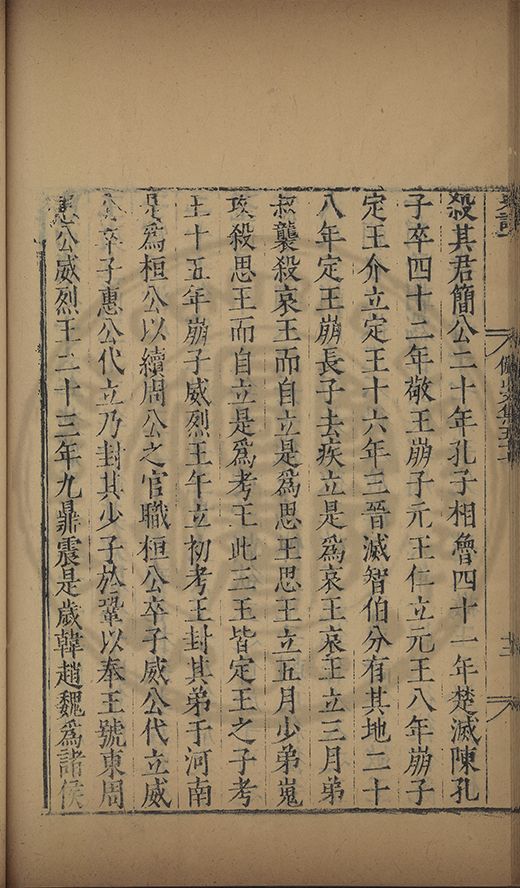 殺其君簡公二十年孔子相魯四十一年楚滅陳孔
子卒四十二年敬王崩子元王仁立元王八年崩子
定王介立定王十六年三晉滅智伯分有其地二十
八年定王崩長子去疾立是爲哀王哀王立三月弟
叔襲殺哀王而自立是爲思王思王立五月少弟嵬
攻殺思王而自立是爲考王此三王皆定王之子考
王十五年崩子威烈王午立初考王封其弟于河南
是爲桓公以續周公之官職桓公卒子威公代立威
公卒子惠公代立乃封其少子於鞏以奉王號東周
惠公威烈王二十三年九鼎震是歲韓趙魏爲諸侯